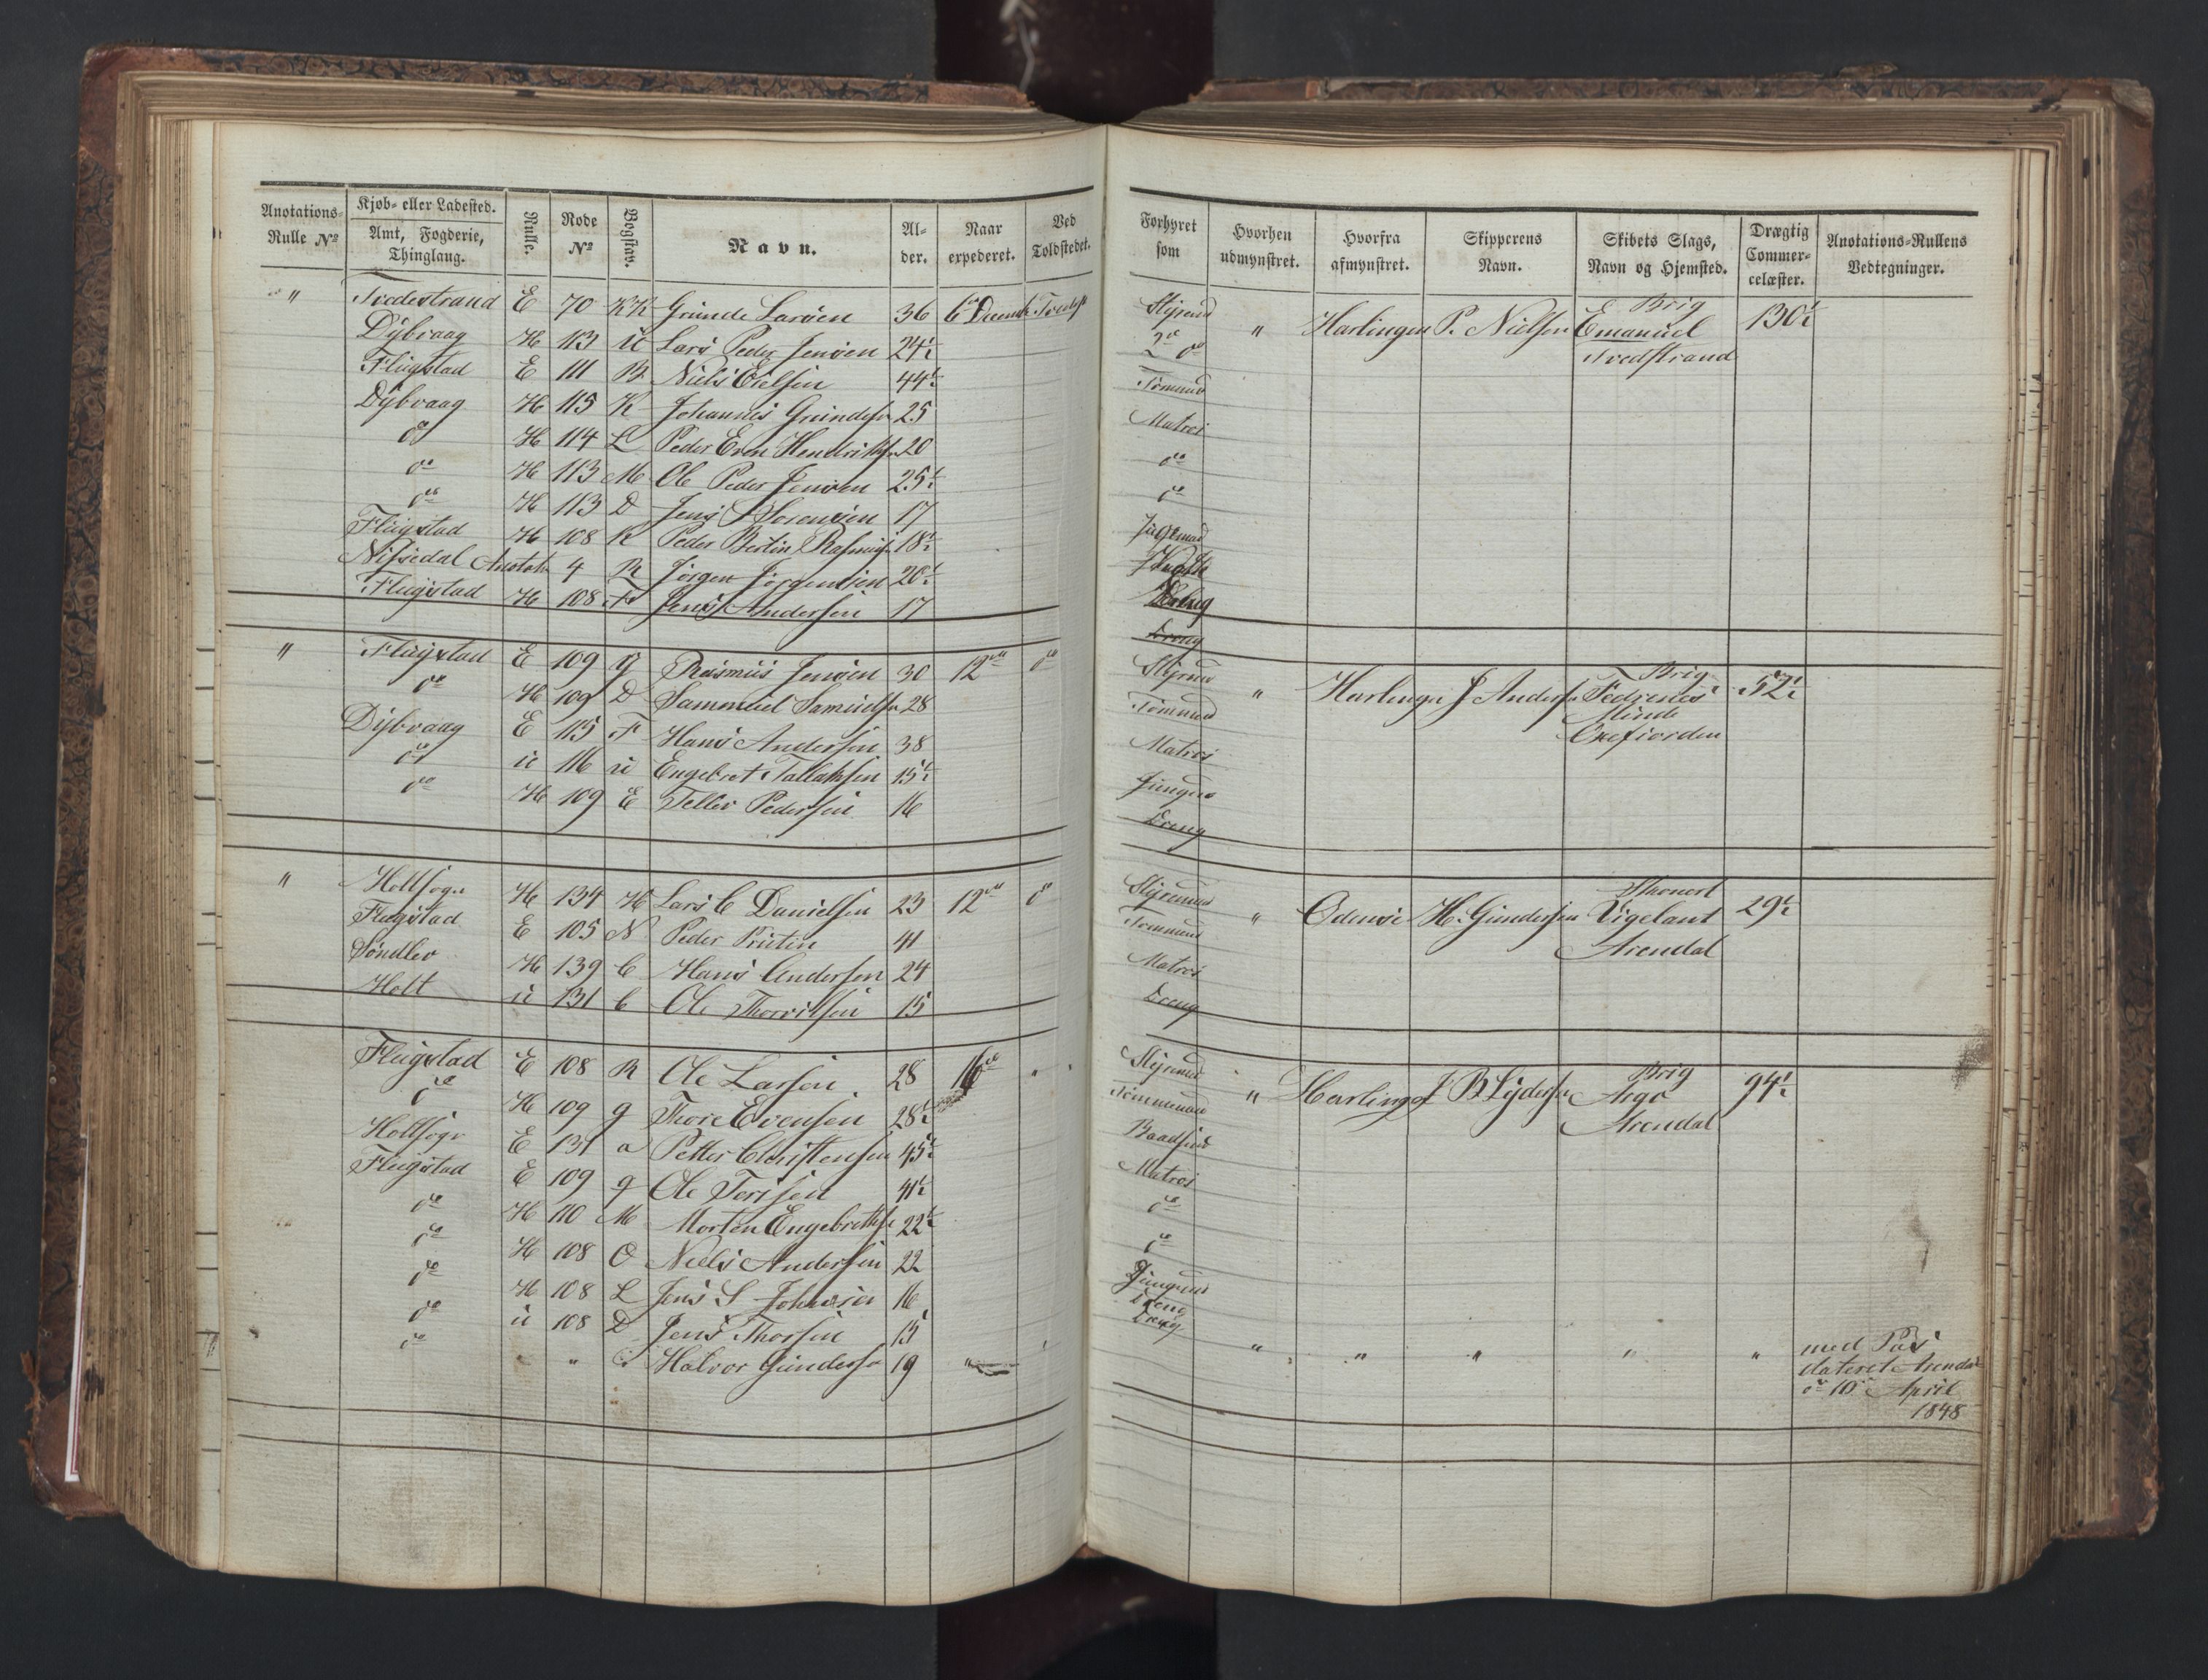 Anotations- Rulle No | Kjøb- eller Ladested. Amt, Fogderie, Thinglang. | Rulle. | Rode No | Bogstav. | Navn. | Al- der. | Naar expederet. | Ved Toldstedet.
" Tvedestrand E 70 KK Gunde Larsen 36 6te Decemb Tvedst
Dÿbvaag H 113 U Lars Peder Jensen 24½
Flagstad E 111 B Niels Eielsen 44½
Dÿbvaag H 115 K Johannes Grundesen 25
do H 114 L Peder Even Hendriksen 20
do H 113 M Ole Peder Jensen 25½
do H 113 D Jens S Sorensen 17
Flagstad H 108 K Peder Bertin Rasmus 18½
Nissedal Anotat 4 R Jørgen Jørgensen 20½
Flagstad H 108 F Jens Andersen 17
" Flagstad E 109 G Rasmus Jensen 30 12te do
do H 109 D Sammuel Samuelsen 28
Dÿbvaag E 115 F Hans Andersen 38
do U 116 U Engebret Tallaksen 15½
do H 109 E Tellev Pedersen 16
" Holtsogn H 134 H Lars C Danielsen 23 12te do
Flagstad E 105 N Peder Pristin 41
Søndlev H 139 C Hans Anderson 24
Holt U 131 C Ole Thorvilsen 15
Flagstad E 108 R Ole Larsen 28 16de "
do H 109 g Thore Evensen 28½
Holtsogn E 131 a Petter Christensen 45½
Flagstad E 109 g Ole Tersen 41½
do H 110 M Morten Engebrethsen 22½
do H 108 O Niels Andersen 22
do H 108 L Jens S Johnsen 16
do U 108 D Jens Thorsen 15
do " Halvor Gundersen 19 "
Forhyret som | Hvorhen udmynstret. | Hvorfra afmynstret. | Skipperens Navn. | Skibets Slags, Navn og Hjemsted. | Drægtig Commer- celæster. | Anotations-Rullens Vedtegninger.
Styrmd " Harlingen P. Nielsen Brig Emanuel Tvedstrand 130½
2d do
Tømmd
Matros
do
do
Jungmd
Kok
Dreng
Dreng
Styrmd " Harlingen J Andersen Brig Fedrenes Minde Oxefiorden 52½
Tømmd
Matros
Jungmd
Dreng
Styrmd " Odense H. Gundersen Skonert Vigelant Arendal 29½
Tømmd
Matros
Dreng
Styrmd " Harlingen J B Lydersen Brig Argo Arendal 94½
Tømmermd
Baadsmd
Matros
do
do
Jungmd
Dreng
Dreng
" " " " " med Pas
dateret Arendal
do 10 April
1848